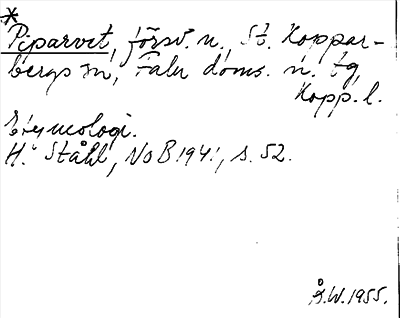 *
Piparvet, försv. n., St. Koppar-
bergs sn, Falu doms. n. tg,
Kopp. l.
Etymologi.
H. Ståhl, NoB 1941, s. 52.
Å.W. 1955.